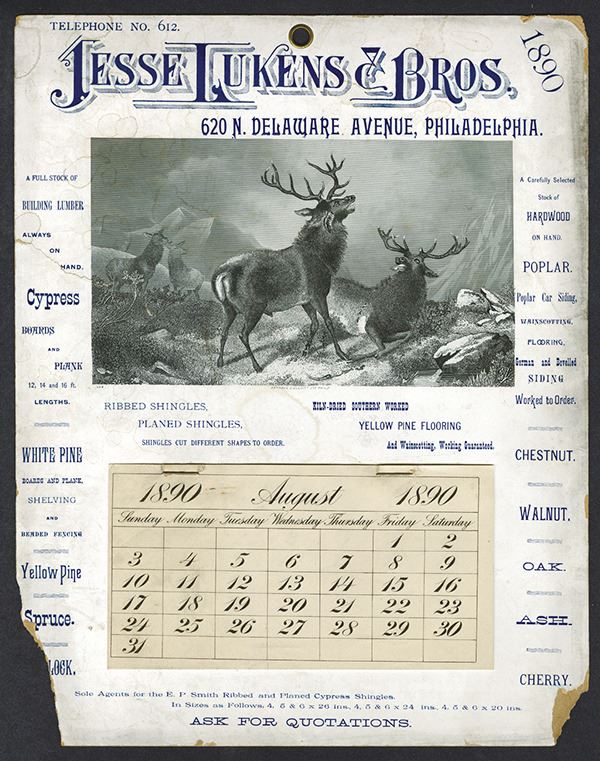 TELEPHONE NO. 612.
1890
JESSE LUKENS & BROS.,
620 N. DELAWARE AVENUE, PHILADELPHIA.
A FULL STOCK OF
BUILDING LUMBER
ALWAYS
ON
HAND.
Cypress
BOARDS
AND
PLANK
12, 14 and 16 ft.
LENGTHS.
WHITE PINE
BOARDS AND PLANK,
SHELVING
AND
BEADED FENCING
Yellow Pine
Spruce.
LOCK.
A Carefully Selected
Stock of
HARDWOOD
ON HAND.
POPLAR.
Poplar Car Siding,
WAINSCOTTING,
FLOORING,
German and Bevelled
SIDING
Worked to Order.
CHESTNUT.
WALNUT.
OAK.
ASH.
CHERRY.
RIBBED SHINGLES,
PLANED SHINGLES,
SHINGLES CUT DIFFERENT SHAPES TO ORDER.
KILN-DRIED SOUTHERN WORKED
YELLOW PINE FLOORING
And Wainscotting, Working Guaranteed.
1890 August 1890
Sunday Monday Tuesday Wednesday Thursday Friday Saturday
1 2
3 4 5 6 7 8 9
10 11 12 13 14 15 16
17 18 19 20 21 22 23
24 25 26 27 28 29 30
31
Sole Agents for the E. P. Smith Ribbed and Planed Cypress Shingles.
In Sizes as Follows: 4, 5 & 6 x 26 ins., 4, 5 & 6 x 24 ins., 4, 5 & 6 x 20 ins.
ASK FOR QUOTATIONS.